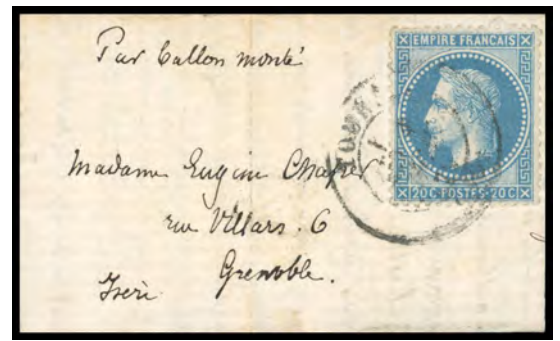 Par ballon monté
EMPIRE FRANCAIS
20C·POSTES·20C
Madame Eugène Chaper
rue Villars. 6
Grenoble.
Isère